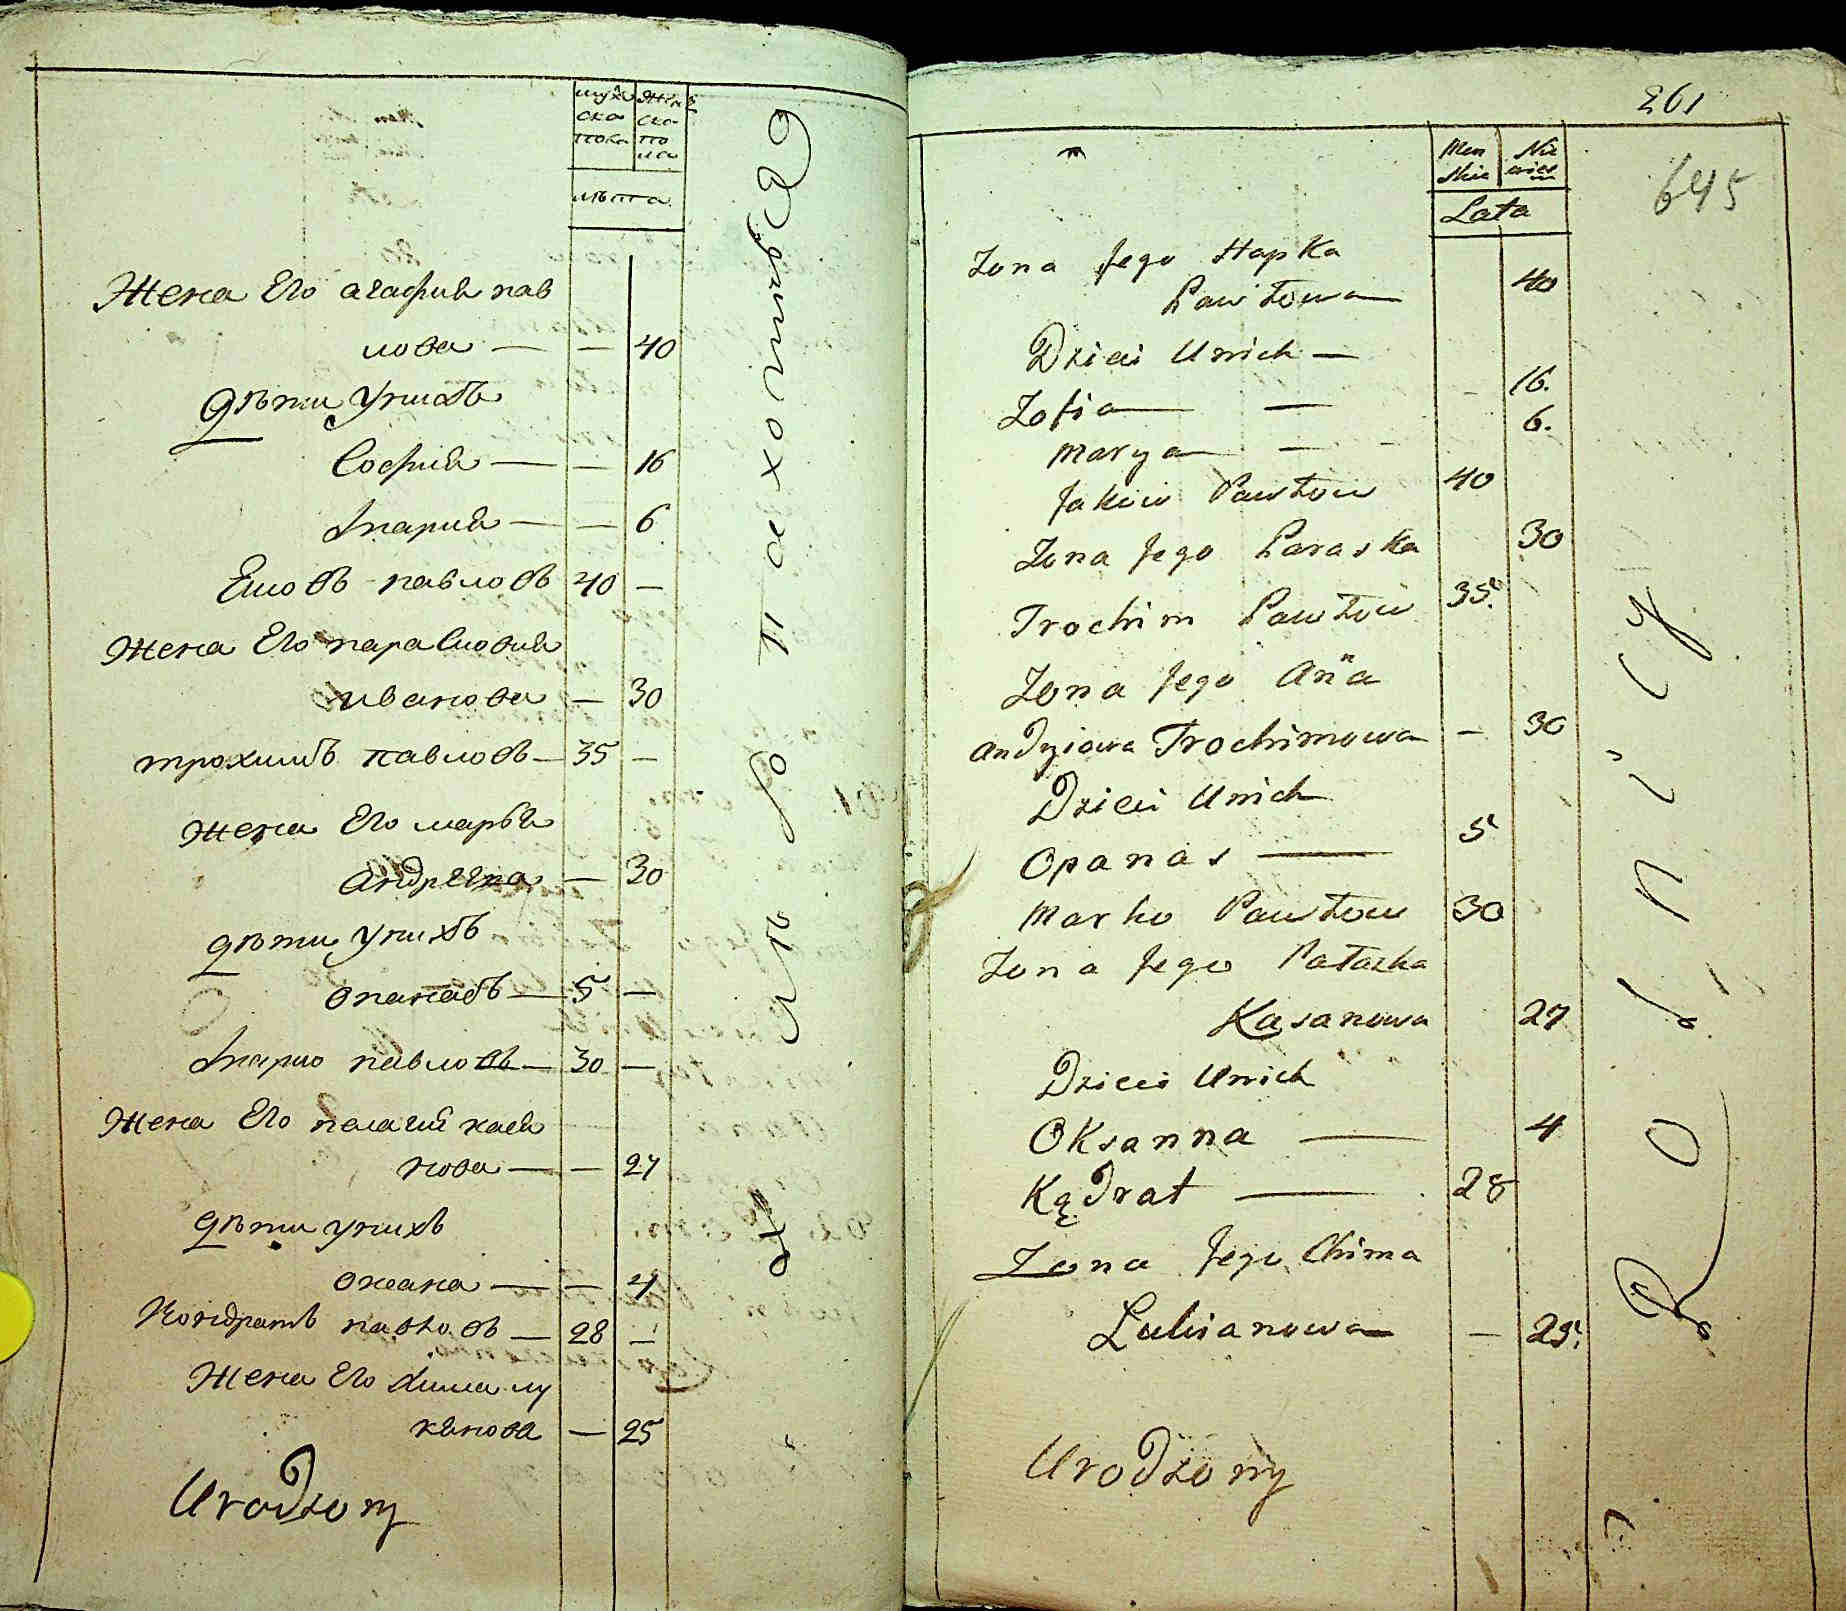 мужеска пола
женска пола
лѣта
Жена Его агафия пав
лова — — 40
Дѣти Унихъ
София — — 16
Мария — — 6
Яковъ павловъ 40 —
Жена Его парасковия
иванова — 30
трохимъ павловъ — 35 —
Жена Его марья
андреева — 30
дѣти унихъ
опанасъ — 5 —
Марко павловъ — 30 —
Жена Его пелагия касья
нова — — 27
дѣти унихъ
оксана — — 4
Кондратъ павловъ — 28 —
Жена Его химма лу
кянова — 25
Urodzony
261
645
Men
skie
Nie
wies
Lata
Zona Jego Hapka
Pawłowa 40
Dzieci Unich —
Zofia — — 16.
Marya — — 6.
Jakow Pawłow 40
Zona Jego Paraska 30
Trochim Pawłow 35.
Zona Jego Anna
Andryiowa Trochimowa — 30
Dzieci Unich
Opanas — 5
Marko Pawłow 30
Zona Jego Pałazka
Kasanowa 27
Dzieci Unich
Oksanna — 4
Kądrat — 28
Zona Jego Chima
Lukianowa — 25.
Urodzony